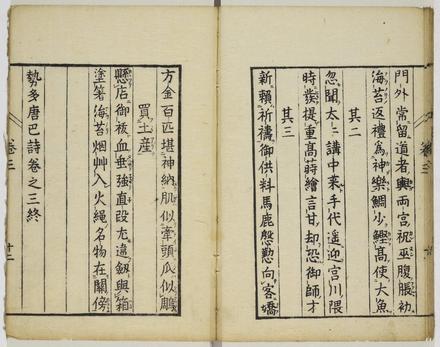 門外常留道者輿両宮祝巫腹脹初
海苔返禮為神樂鯛少鰹高使大魚
其二
忽聞太々講中來手代遥迎宮川隈
時裝提重高蒔繪言甘却恐御師才
其三
新賴祈禱御供料馬鹿慇懃向客嬌
方金百匹堪神納肌似牽頭瓜似鵰
買土産
懸店御祓血垂強直段尤違釼與箱
塗箸海苔烟艸入火繩名物在關傍
勢多唐巴詩卷之三終
卷三
十二